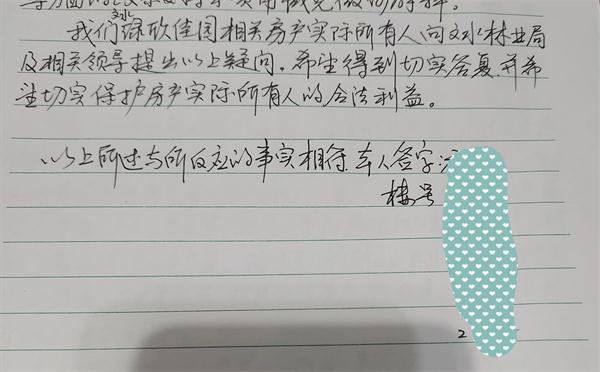 我们绿欣佳园相关房产实际所有人向文水林业局
文水
及相关领导提出以上疑问，希望得到切实答复，并希
望切实保护房产实际所有人的合法利益。
以上所述与所反应的事实相符，本人签字：
楼号
2